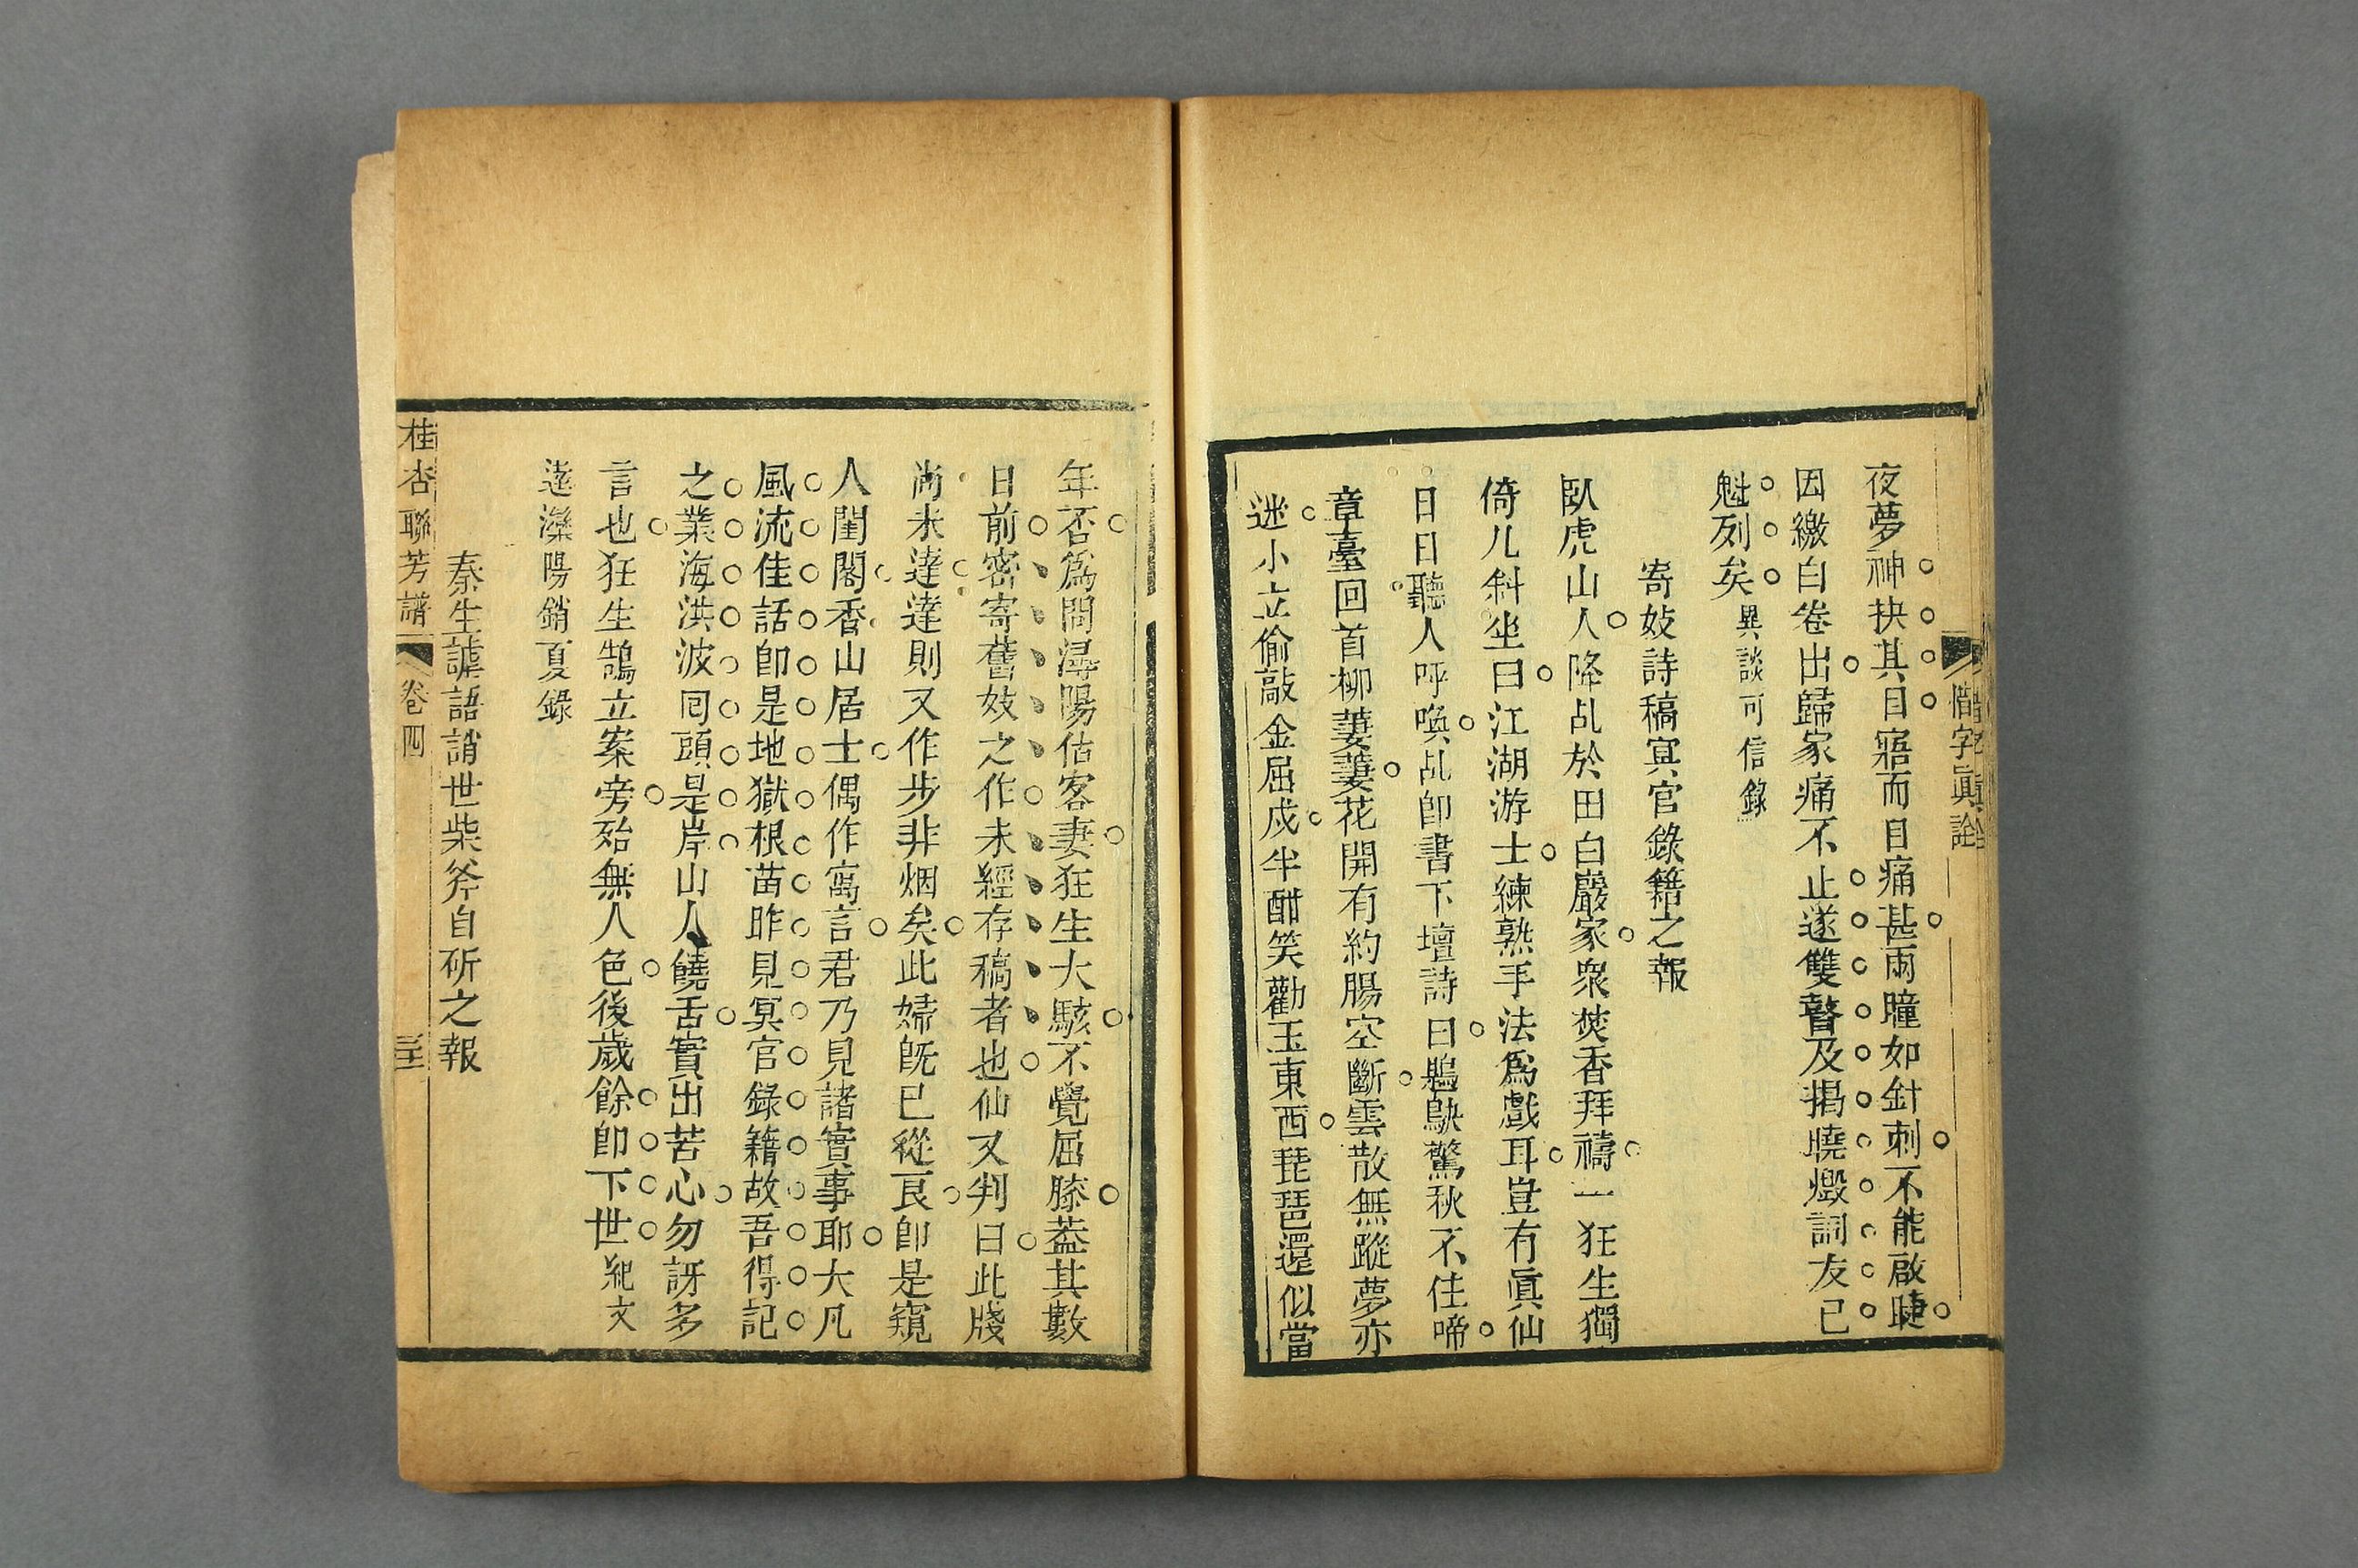 惜字眞詮
夜夢神抉其目寤而目痛甚兩瞳如針刺不能啟睫
因繳白卷出歸家痛不止遂雙瞽及揭曉燬詞友已
魁列矣異談可信錄
寄妓詩稿冥官錄籍之報
臥虎山人降乩於田白巖家衆焚香拜禱一狂生獨
倚几斜坐曰江湖游士練熟手法爲戲耳豈有眞仙
日日聽人呼喚乩卽書下壇詩曰鶗鴃驚秋不住啼
章臺回首柳萋萋花開有約腸空斷雲散無蹤夢亦
迷小立偷敲金屈戍半酣笑勸玉東西琵琶還似當
年否爲問潯陽估客妻狂生大駭不覺屈膝葢其數
日前密寄舊妓之作未經存稿者也仙又判曰此牋
尚未達達則又作步非烟矣此婦旣已從良卽是窺
人閨閣香山居士偶作寓言君乃見諸實事耶大凡
風流佳話卽是地獄根苗昨見冥官錄籍故吾得記
之業海洪波囘頭是岸山人饒舌實出苦心勿訝多
言也狂生鵠立案旁殆無人色後歲餘卽下世紀文
達灤陽銷夏錄
秦生謔語誚世柴斧自斫之報
桂杏聯芳譜 卷四 三十